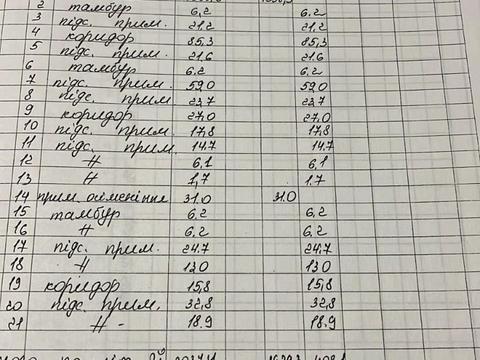 2 тамбур 6,2 6,2
3 підс. прим. 21,2 21,2
4 коридор 85,3 85,3
5 підс. прим. 21,6 21,6
6 тамбур 6,2 6,2
7 підс. прим. 59,0 59,0
8 підс. прим 23,7 23,7
9 коридор 27,0 27,0
10 підс. прим. 17,8 17,8
11 підс. прим 14,7 14,7
12 -//- 6,1 6,1
13 -//- 1,7 1.7
14 прим. осіменіння 31.0 31.0
15 тамбур 6,2 6,2
16 -//- 6,2 6,2
17 підс. прим. 24.7 24,7
18 -//- 13.0 13.0
19 коридор 15,8 15,8
20 підс. прим. 32,8 32,8
21 -//- 18.9 18.9